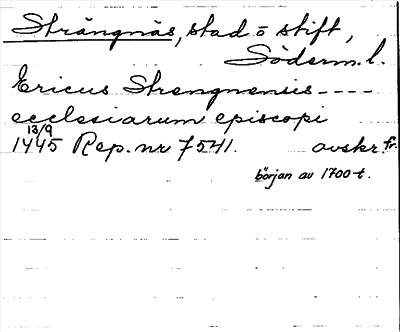 Strängnäs, stad o stift,
Söderm.l.
Ericus Strengnensis ----
ecclesiarum episcopi
13/9
1445 Rep. nr 7541. avskr. fr.
början av 1700-t.